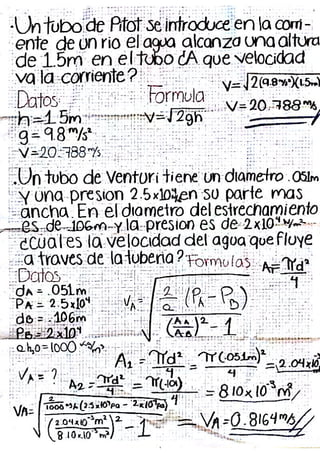 .Un tubo de Pitot se introduce en la corri-
ente de un rio el agua alcanza una altura
de 1.5m en el tubo ¿A que velocidad
va la corriente? V=√2(9.8m/s²)(1.5m)
Datos Formula
h=1.5m V=√2gh V=20.788m/s
g=9.8m/s²
V=20.788m/s
.Un tubo de Venturi tiene un diametro .051m
y una presion 2.5x10⁴ en su parte mas
ancha. En el diametro del estrechamiento
es de .106m y la presion es de 2x10⁴ N/m²
¿cual es la velocidad del agua que fluye
a traves de la tuberia? Formulas A=πd²/4
Datos
dA = .051m
PA = 2.5x10⁴
dB = .106m
PB = 2x10⁴
VA=√ 2/ρ (PA-PB) / (AA/AB)²-1
ρh₂o=1000 kg/m³
A1 = πd²/4 = π(.051m)²/4 = 2.04x10
VA=? A2 = πd²/4 = π(.101)/4 = 8.10x10⁻³m²
VA=√ 2/1000 (2.5x10⁴pa - 2x10⁴pa) / (2.04x10⁻³m²/8.10x10⁻³m²)² - 1 = VA=0.8164m/s